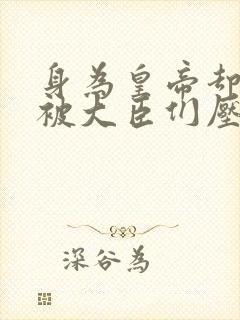 身為皇帝却
被大臣们壓
深谷為